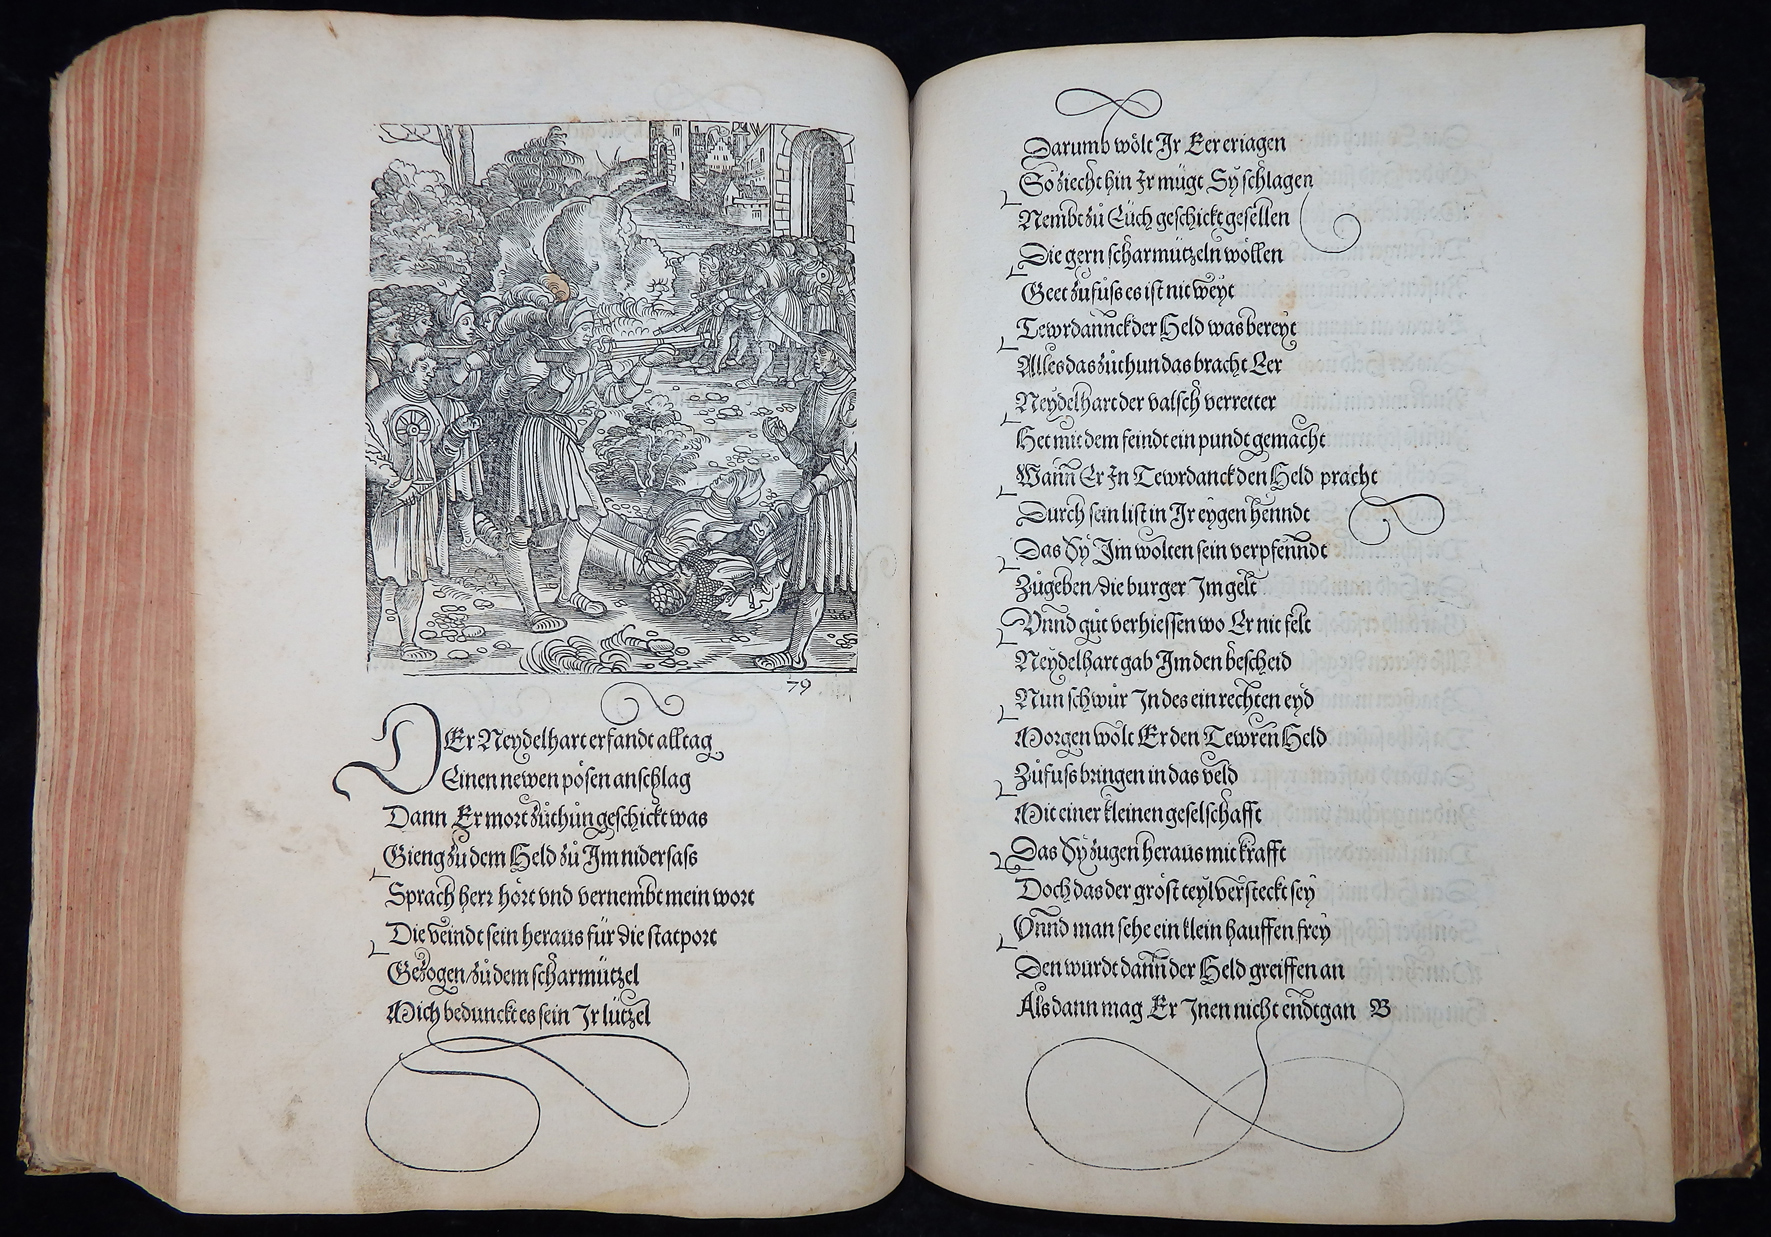 79
DEr Neydelhart erfandt alltag
Einen newen pösen anschlag
Dann Er mort zůthůn geschickt was
Gieng zu dem Held zů Im nidersass
Sprach herr hört vnd vernembt mein wort
Die veindt sein heraus für die statport
Gezogen zů dem scharmützel
Mich bedunckt es sein Ir lützel
Darumb wölt Ir Eer eriagen
So ziecht hin Ir mügt Sy schlagen
Nembt zů Eüch geschickt gesellen
Die gern scharmützeln wöllen
Geet zu fuss es ist nit weyt
Tewrdannck der Held was bereyt
Alles das zůthun das bracht Eer
Neydelhart der valsch verretter
Het mit dem feindt ein pundt gemacht
Wann Er In Tewrdanck den Held pracht
Durch sein list in Ir eygen henndt
Das Sy Im wolten sein verpfenndt
Zůgeben/die burger Im gelt
Vnnd gůt verhiessen wo Er nit felt
Neydelhart gab Im den bescheid
Nun schwůr In des ein rechten eyd
Morgen wölt Er den Tewren Held
Zůfuss bringen in das veld
Mit einer kleinen geselschafft
Das Sy zugen heraus mit krafft
Doch das der gröst teyl versteckt sey
Vnnd man sehe ein klein hauffen frey
Den wurdt dann der Held greiffen an
Als dann mag Er Inen nicht endtgan B